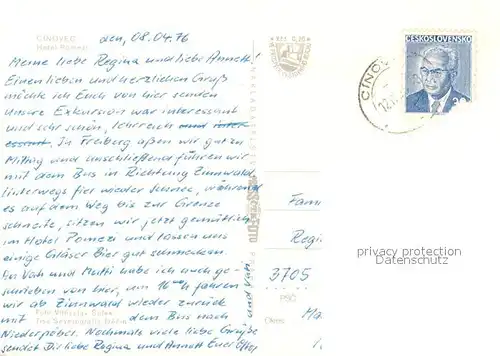 CINOVEC
Hotel Pomezí
den, 08.04.76
Meine liebe Regina und liebe Annett!
Einen lieben und herzlichen Gruß
möchte ich Euch von hier senden
Unsere Exkursion war interessant
und sehr schön, lehrreich und inter-
essant. In Freiberg aßen wir zu
Mittag und anschließend führen wir
mit dem Bus in Richtung Zinnwald
Unterwegs fiel wieder Schnee, während
es auf dem Weg bis zur Grenze
schneite, sitzen wir jetzt gemütlich
im Hotel Pomezi und lassen uns
einige Gläser Bier gut schmecken.
An Vati und Mutti habe ich auch ge-
schrieben von hier, um 16 00 h fahren
wir ab Zinnwald wieder zurück
mit dem Bus nach
Niederpöbel. Nochmals viele liebe Grüße
sendet Dir liebe Regina und Annett Euer
und Vati
ČESKOSLOVENSKO
30
CINOV
Fam
Regi
3705
PSČ
Okres
privacy protection
Datenschutz